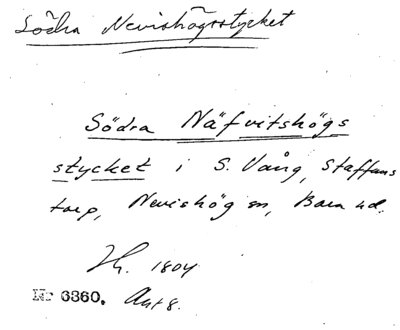 Södra Nevishögsstycket
Södra Näfvitshögs
stycket i S. Vång, Staffans
torp, Nevishög sn, Bara hd.
Th. 1804
Nr 6360. Akt 8.